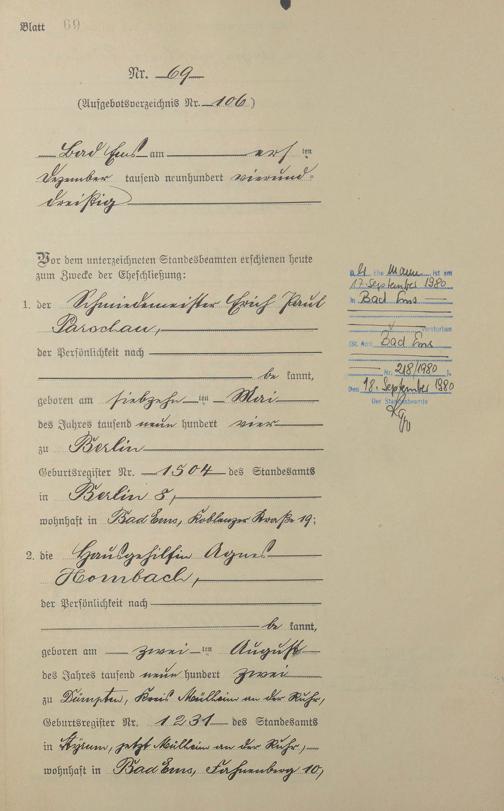 Blatt 69
Nr. 69
(Aufgebotsverzeichnis Nr. 106)
Bad Ems am ersten
Dezember tausend neunhundert vierund-
dreißig
Vor dem unterzeichneten Standesbeamten erschienen heute
zum Zwecke der Eheschließung:
1. der Schmiedemeister Erich Paul
Parochau,
der Persönlichkeit nach
be kannt,
geboren am siebzehn ten Mai
des Jahres tausend neun hundert vier
zu Berlin
Geburtsregister Nr. 1504 des Standesamts
in Berlin 8,
wohnhaft in Bad Ems, Koblenzer Straße 19;
2. die Hausgehilfin Agnes
Hombach,
der Persönlichkeit nach
be kannt,
geboren am zwei ten August
des Jahres tausend neun hundert zwei
zu Dümpten, Kreis Mülheim an der Ruhr,
Geburtsregister Nr. 1231 des Standesamts
in Styrum, jetzt Mülheim an der Ruhr,
wohnhaft in Bad Ems, Fahnenberg 10,
Mann ist am
17. September 1980
in Bad Ems
verstorben
(St. Amt Bad Ems
Nr. 218/1980 ).
Den 18. September 1980
Der Standesbeamte